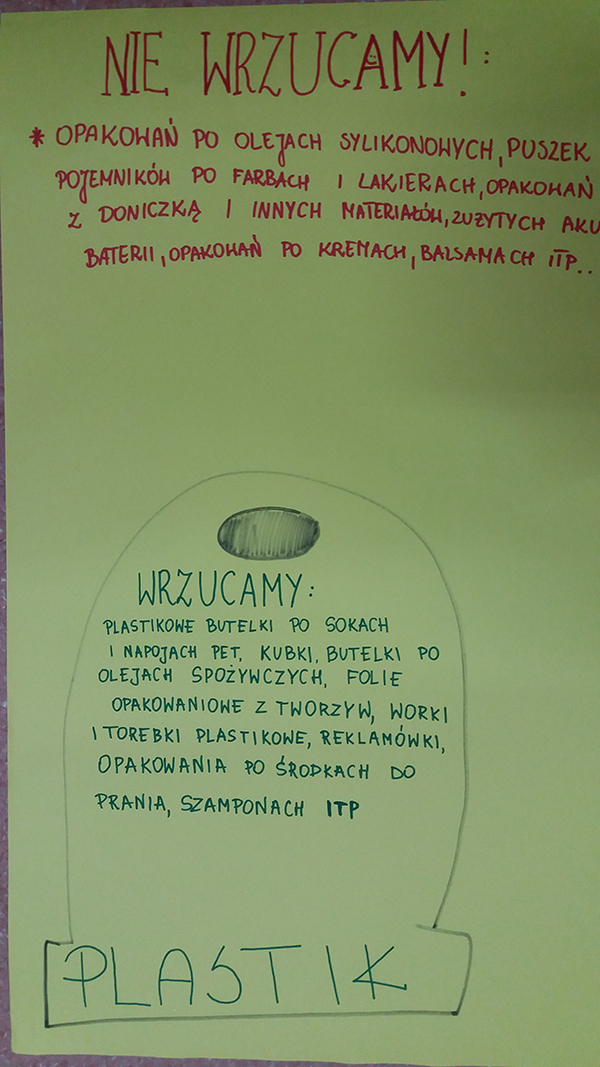 NIE WRZUCAMY!:
* OPAKOWAŃ PO OLEJACH SYLIKONOWYCH, PUSZEK
POJEMNIKÓW PO FARBACH I LAKIERACH, OPAKOWAŃ
Z DONICZKĄ I INNYCH MATERIAŁÓW, ZUŻYTYCH AKU
BATERII, OPAKOWAŃ PO KREMACH, BALSAMACH ITP..
WRZUCAMY:
PLASTIKOWE BUTELKI PO SOKACH
I NAPOJACH PET, KUBKI, BUTELKI PO
OLEJACH SPOŻYWCZYCH, FOLIE
OPAKOWANIOWE Z TWORZYW, WORKI
I TOREBKI PLASTIKOWE, REKLAMÓWKI,
OPAKOWANIA PO ŚRODKACH DO
PRANIA, SZAMPONACH ITP
PLASTIK